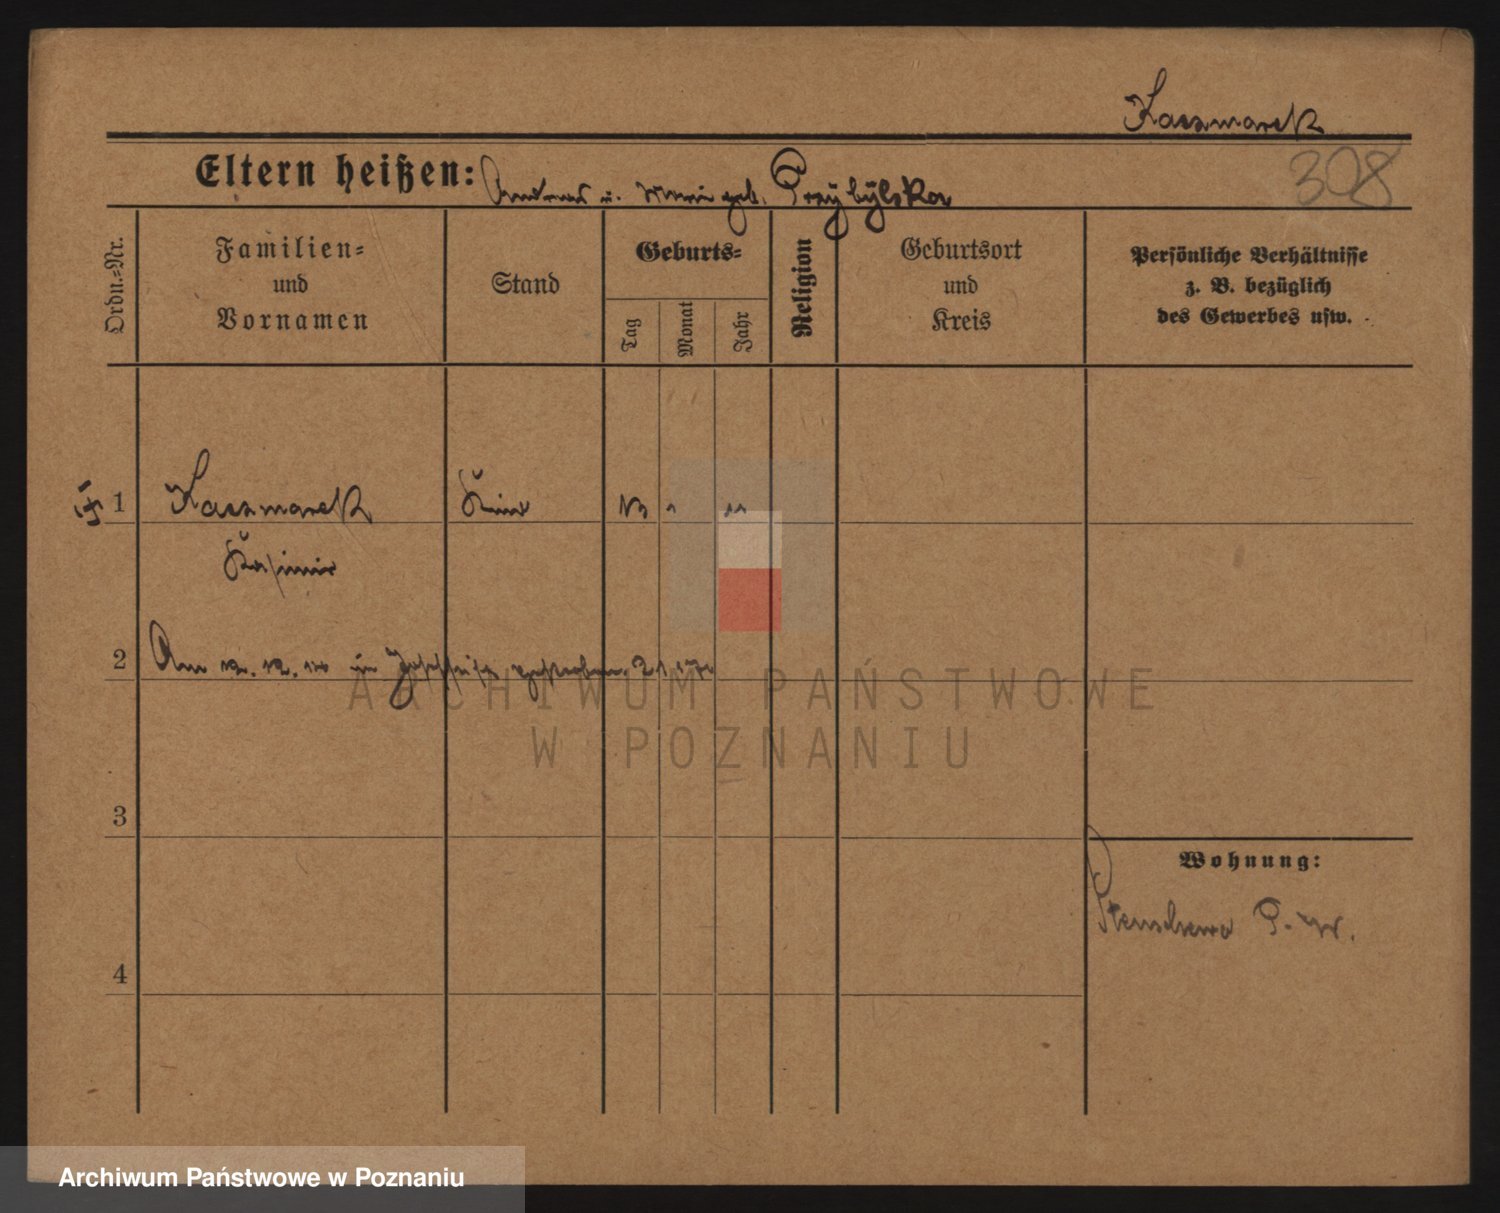 Kaczmarek
Eltern heißen: Andreas u. Marie geb. Przybylska
308
Ordn.=Nr.
Familien=
und
Vornamen
Stand
Geburts=
Tag
Monat
Jahr
Religion
Geburtsort
und
Kreis
Persönliche Verhältnisse
z. B. bezüglich
des Gewerbes usw.
1 Kaczmarek Kind
Kasimir
2 Am 12. 12. in gestorben
ARCHIWUM PAŃSTWOWE
W POZNANIU
3
Wohnung:
Stenschewo P. W.
4
Archiwum Państwowe w Poznaniu